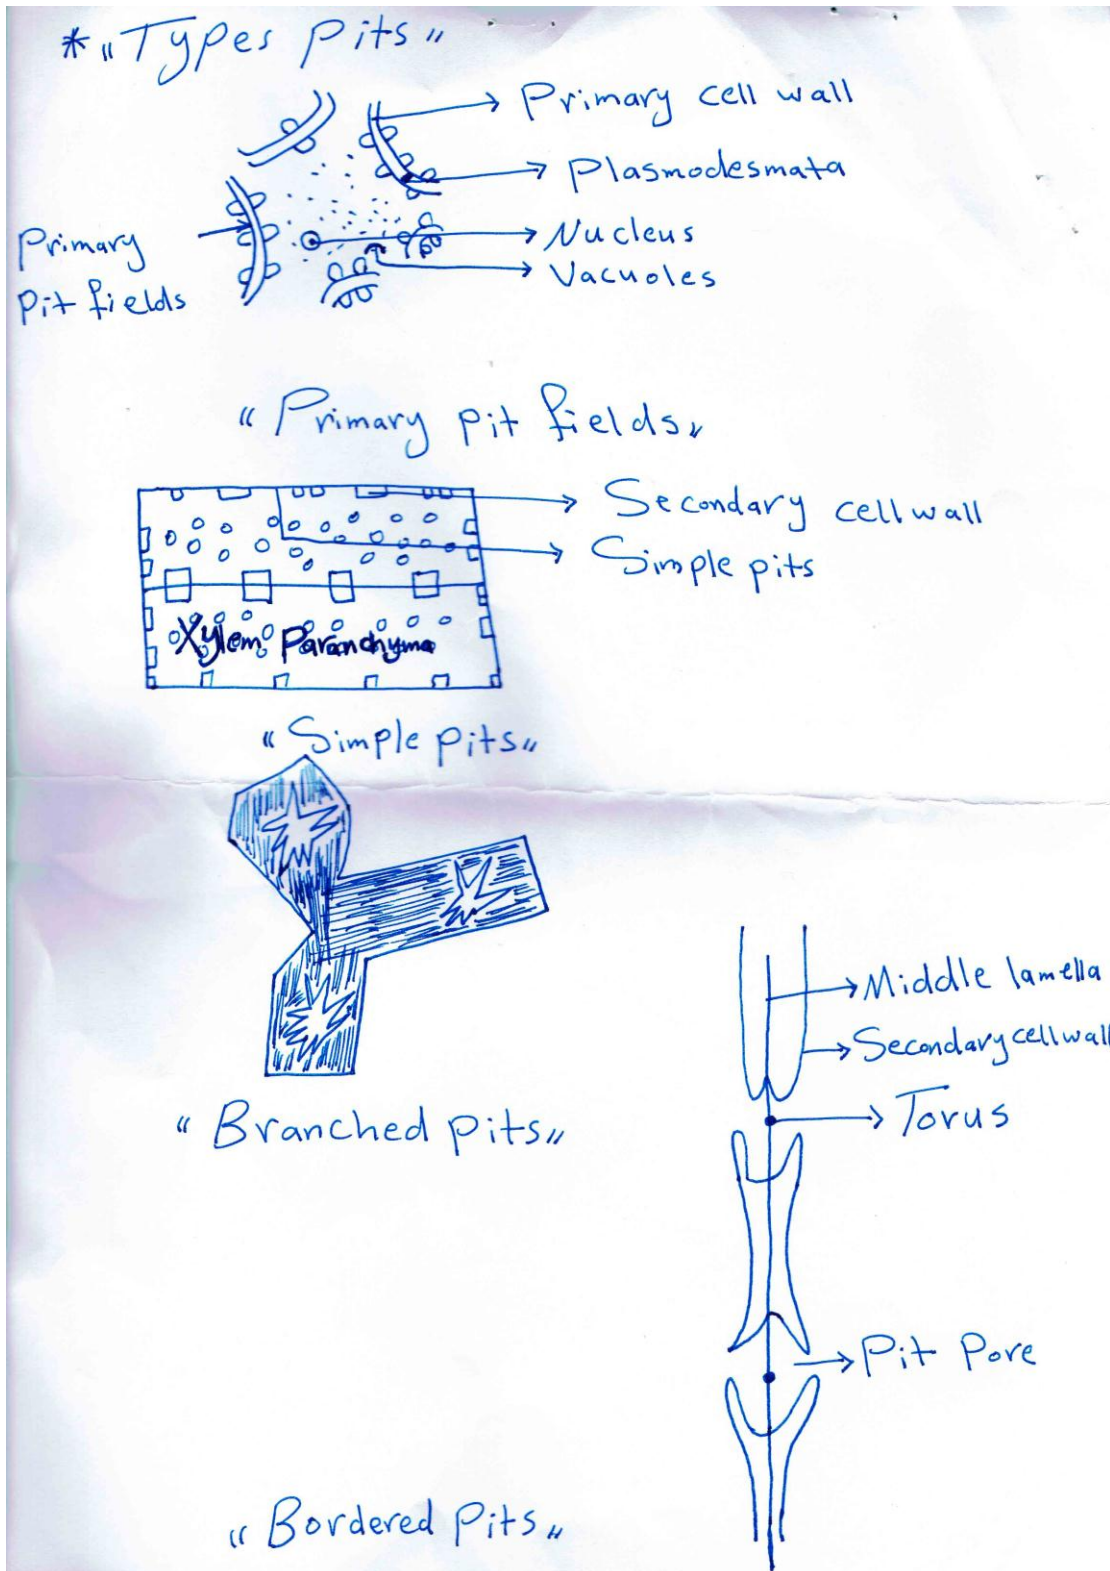 * "Types Pits"
Primary cell wall
Plasmodesmata
Nucleus
Vacuoles
Primary
Pit fields
"Primary pit fields"
Secondary cell wall
Simple pits
Xylem Paranchyma
"Simple pits"
"Branched pits"
Middle lamella
Secondary cell wall
Torus
Pit Pore
"Bordered Pits"